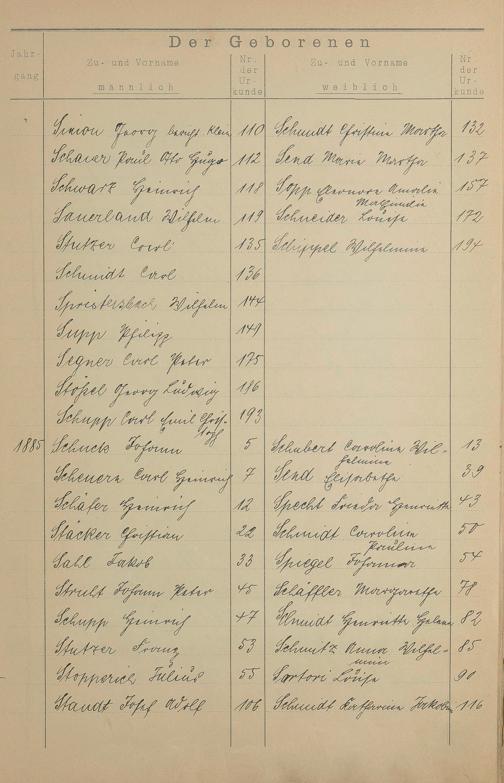 Der Geborenen
Jahr-
gang
Zu- und Vorname
männlich
Nr.
der
Ur-
kunde
Zu- und Vorname
weiblich
Nr
der
Ur-
kunde
Simon Georg Klein 110 Schmidt Christine Martha 132
Paul Otto Hugo 112 Send Marie Martha 137
Schwarz Heinrich 118 Sopp Eleonore Amalie 157
Mathilde
Sauerland Wilhelm 119 Schneider Louise 172
Stutzer Carl 135 Schippel Wilhelmine 194
Schmidt Carl 136
Spriestersbach Wilhelm 144
Supp Philipp 149
Segner Carl Peter 175
Stössel Georg Ludwig 186
Schupp Carl Emil Chris- 193
toph
1885 Schuck Johann 5 Schubert Caroline Wil- 13
helmine
Scheuern Carl Heinrich 7 Send Elisabethe 39
Schäfer Heinrich 12 Specht Frieda Henriette 43
Stäcker Christian 22 Schmidt Caroline 50
Pauline
Sahl Jakob 33 Spiegel Johanna 54
Struht Johann Peter 45 Schäffler Margarethe 78
Schupp Heinrich 47 Schmidt Henriette Helene 82
Stutzer Franz 53 Schmutz Anna Wilhel- 85
mine
Stopperich Julius 55 Sartori Louise 90
Standt Josef Adolf 106 Schmidt Katharina 116